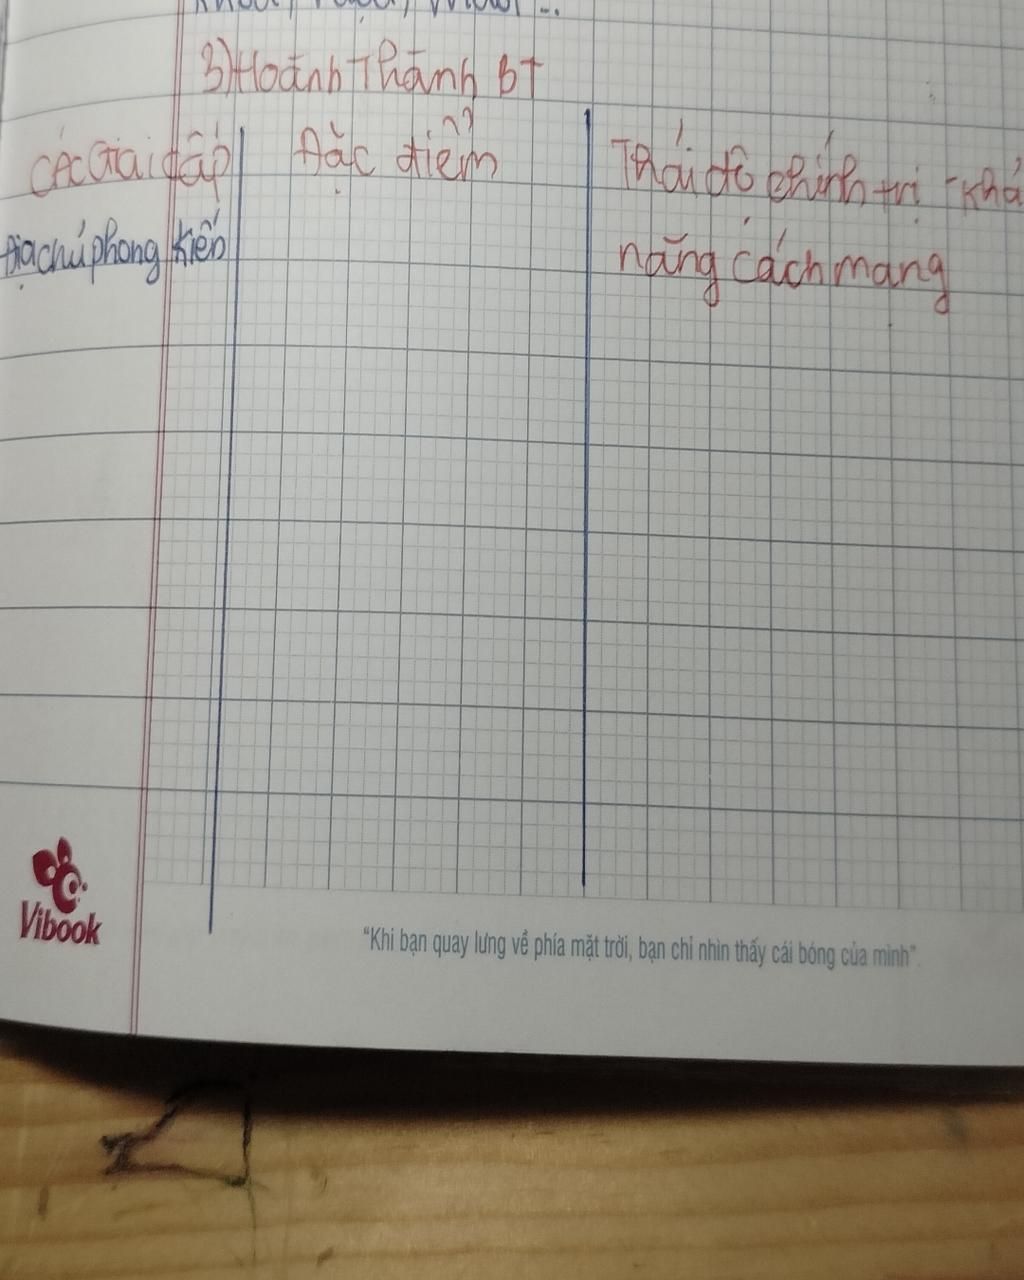 3) Hoành Thành BT
Các Giai đấp
Đặc điểm
Thái độ chính trị - khả
Địa chủ phong kiến
năng cách mạng
Vibook
"Khi bạn quay lưng về phía mặt trời, bạn chỉ nhìn thấy cái bóng của mình".